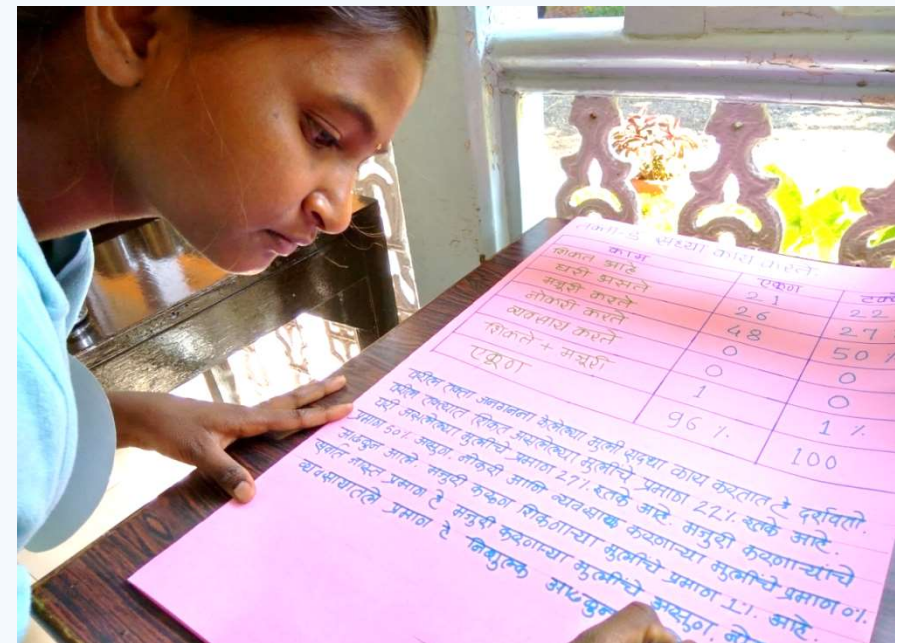 सध्या काय करते
काम एकूण टक्के
शिकत आहे 21 22
घरी असते 26 27
मजूरी करते 48 50 %
नोकरी करते 0 0
व्यवसाय करते 0 0
शिकते + मजूरी 1 1 %
एकूण 96 % 100
वरील तक्ता जनगनना केलेल्या मुली सध्या काय करतात हे दर्शवतो.
वरील तक्त्यात शिकत असलेल्या मुलींचे प्रमाण 22% इतके आहे.
घरी असलेल्या मुलींचे प्रमाण 27% इतके आहे. मजुरी करणाऱ्यांचे
प्रमाण 50% असून नोकरी आणि व्यवसाय करणाऱ्या मुलींचे प्रमाण 0%
आढळून आहे. मजुरी करून शिकणाऱ्या मुलींचे प्रमाण 1% आहे
जास्त प्रमाण हे मजुरी करणाऱ्या मुलींचे असून
व्यवसायातले प्रमाण हे